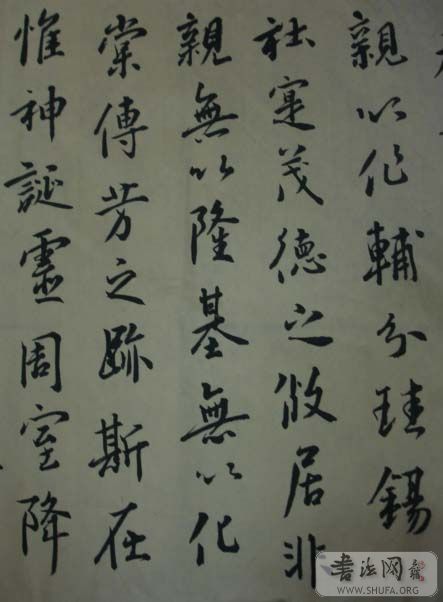 親以作輔分珪錫
社寔茂德之攸居非
親無以隆基無以化
棠傳芳之跡斯在
惟神誕靈周室降
书法网
WWW.SHUFA.ORG